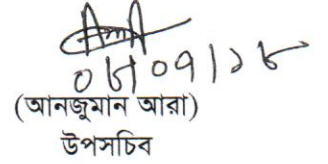 ০৮/০৭/১৮
(আনজুমান আরা)
উপসচিব